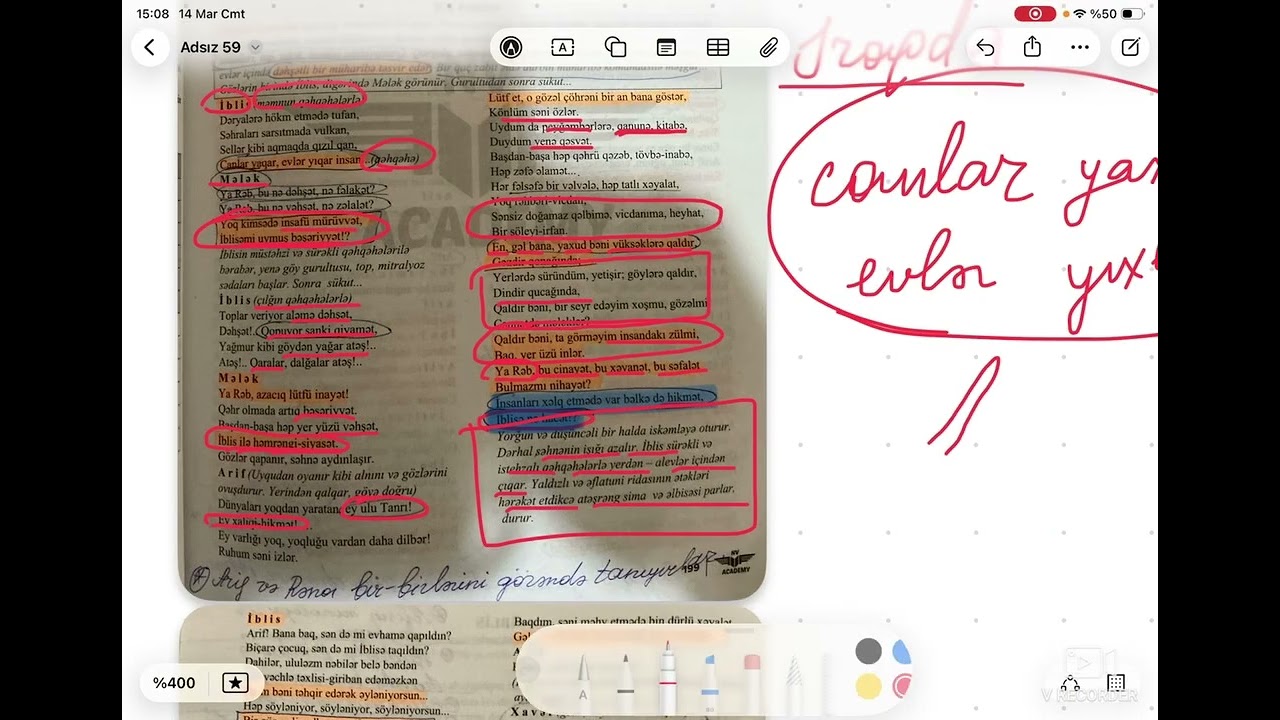 15:08 14 Mar Cmt
%50
Adsız 59
dəhşətli bir müharibə təsvir edər.
İblis, digərində Mələk görünür. Gurultudan sonra sükut...
İblis (məmnun qəhqəhələrlə)
Dəryalərə hökm etmədə tufan,
Səhraları sarsıtmada vulkan,
Sellər kibi aqmaqda qızıl qan,
Canlar yaqar, evlər yıqar insan...(qəhqəhə)
Mələk
Ya Rəb, bu nə dəhşət, nə fəlakət?
Ya Rəb, bu nə vəhşət, nə zəlalət?
Yoq kimsədə insafü mürüvvət,
İblisəmi uymuş bəşəriyyət!?
İblisin müstəhzi və sürəkli qəhqəhələrilə
bərabər, yenə göy gurultusu, top, mitralyoz
sədaları başlar. Sonra sükut...
İblis (çılğın qəhqəhələrlə)
Toplar veriyor aləmə dəhşət,
Dəhşət!.. Qopuyor sanki qiyamət,
Yağmur kibi göydən yağar atəş!..
Atəş!.. Qaralar, dalğalar atəş!..
Mələk
Ya Rəb, azacıq lütfü inayət!
Qəhr olmada artıq bəşəriyyət.
Başdan-başa həp yer yüzü vəhşət,
İblis ilə həmrəngi-siyasət.
Gözlər qapanır, səhnə aydınlaşır.
Arif (Uyqudan oyanır kibi alnını və gözlərini
ovuşdurur. Yerindən qalqar, göyə doğru)
Dünyaları yoqdan yaratan ey ulu Tanrı!
Ey xaliqi-hikmət!...
Ey varlığı yoq, yoqluğu vardan daha dilbər!
Ruhum səni izlər.
Lütf et, o gözəl çöhrəni bir an bana göstər,
Könlüm səni özlər.
Uydum da peyğəmbərlərə, qanunə, kitabə,
Duydum yenə qəsvət.
Başdan-başa həp qəhrü qəzəb, tövbə-inabə,
Həp zəfə əlamət...
Hər fəlsəfə bir vəlvələ, həp tatlı xəyalat,
Yoq rəhbəri-vicdan,
Sənsiz doğamaz qəlbimə, vicdanıma, heyhat,
Bir şöleyi-irfan.
En, gəl bana, yaxud bəni yüksəklərə qaldır,
Yerlərdə süründüm, yetişir; göylərə qaldır,
Dindir qucağında,
Qaldır bəni, bir seyr edəyim xoşmu, gözəlmi
Qaldır bəni, ta görməyim insandakı zülmi,
Baq, yer üzü inlər.
Ya Rəb, bu cinayət, bu xəyanət, bu səfalət
Bulmazmı nihayət?
İnsanları xəlq etmədə var bəlkə də hikmət,
İblisə nə hacət?
Yorğun və düşüncəli bir halda iskəmləyə oturur.
Dərhal səhnənin işığı azalır. İblis sürəkli və
istehzalı qəhqəhələrlə yerdən – alevlər içindən
çıqar. Yaldızlı və əflatuni ridasının ətəkləri
hərəkət etdikcə atəşrəng sima və əlbisəsi parlar.
durur.
199
NV
ACADEMY
Arif və Rəna bir-birlərini görəndə tanıyırlar
canlar
evlər
İblis
Arif! Bana baq, sən də mi evhamə qapıldın?
Biçarə çocuq, sən də mi İblisə taqıldın?
Dahilər, ululəzm nəbilər belə bəndən
təxlisi-giriban edəməzkən
bəni təhqir edərək əyləniyorsun...
Həp söyləniyor, söyləniyor, söyləniyorsun...
Baqdım, səni məhv etmədə bin dürlü xəyalət
%400
V RECORDER